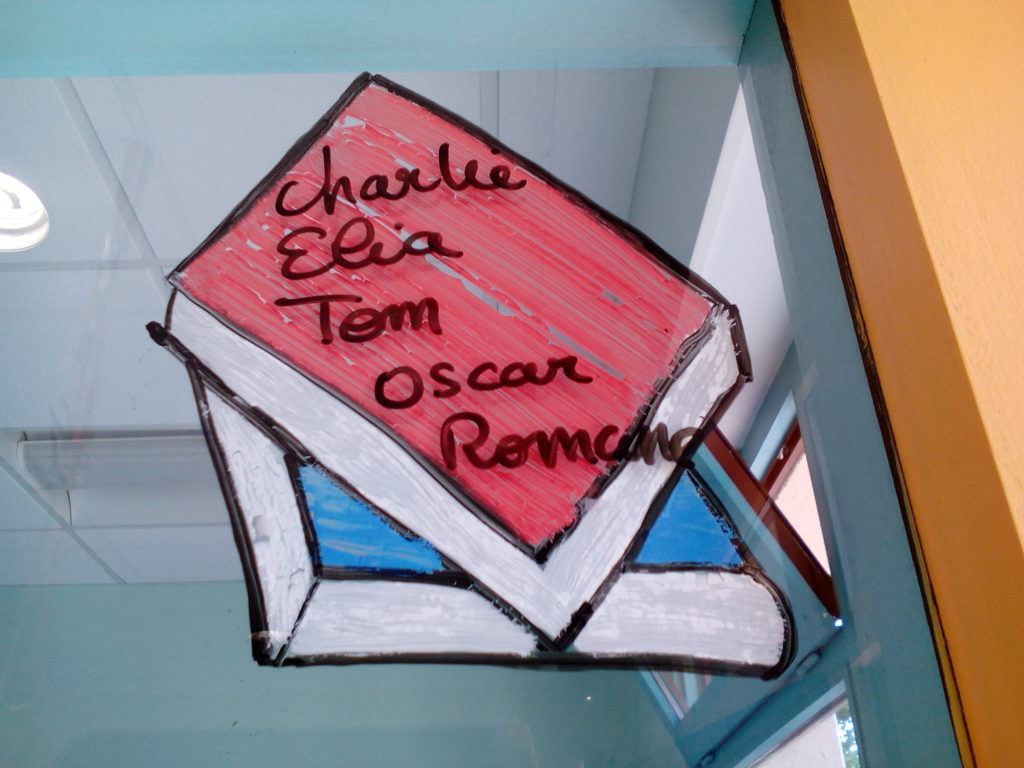 Charlie
Elia
Tom
Oscar
Romane